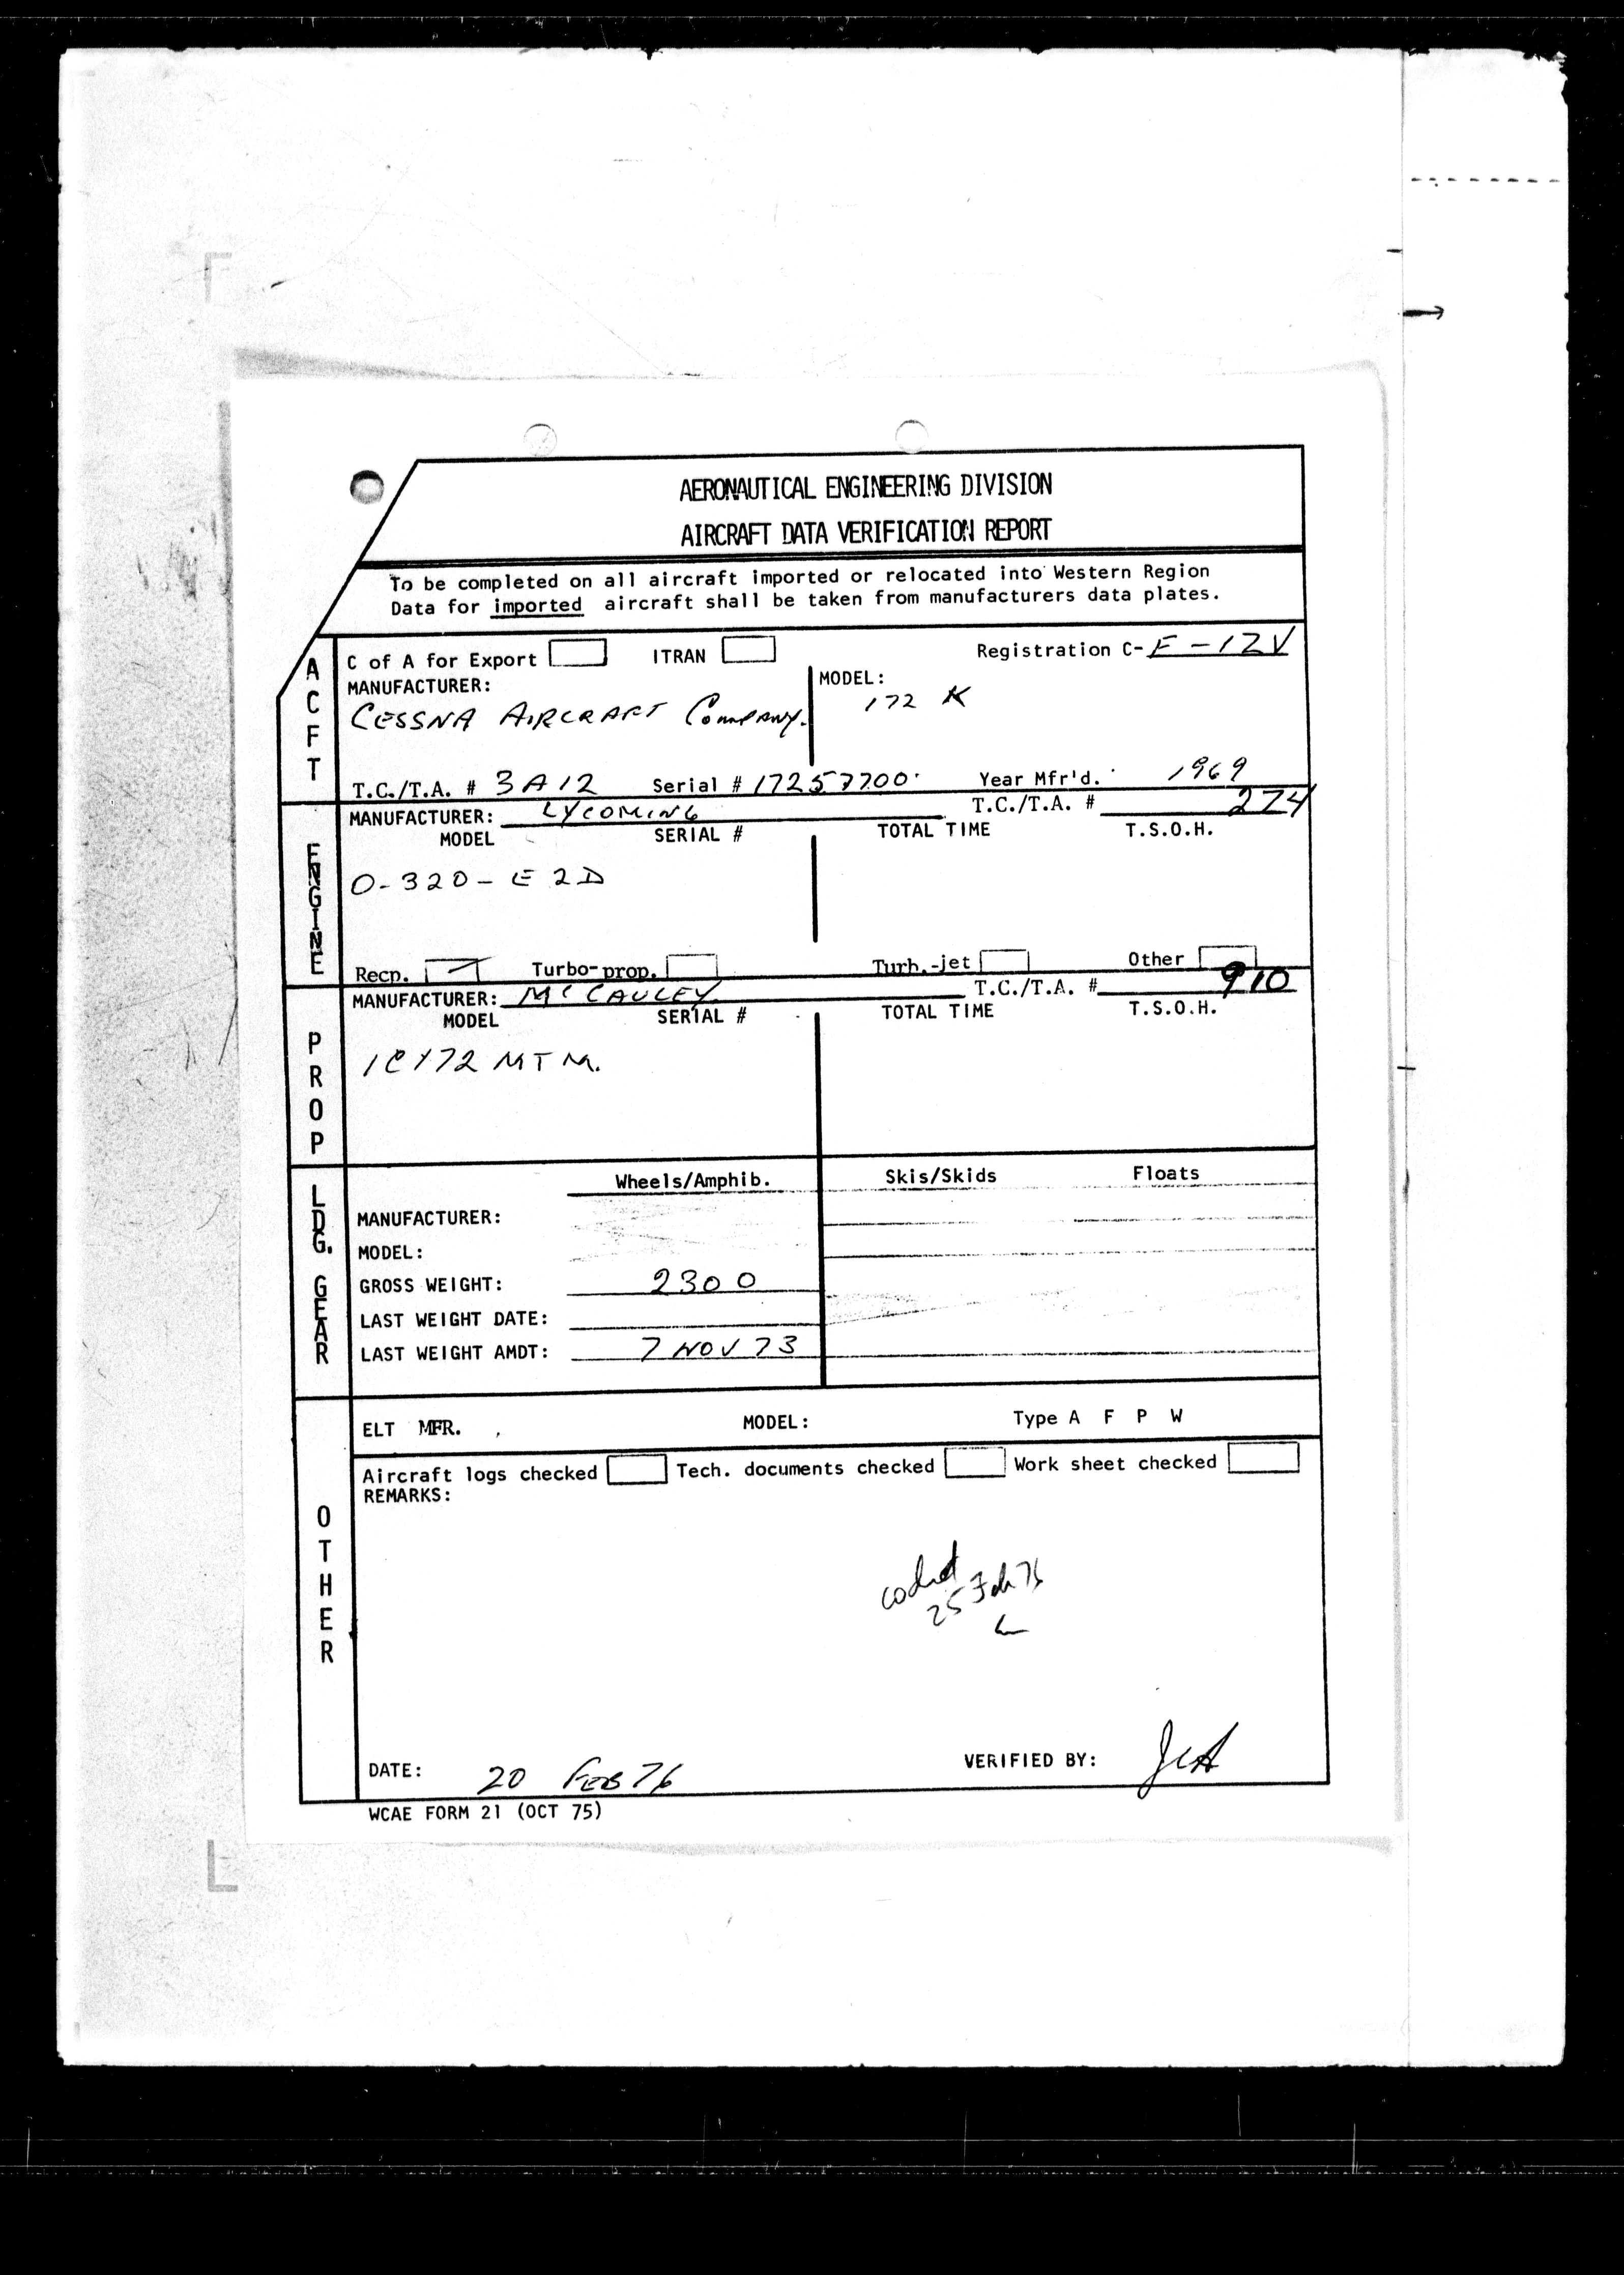 AERONAUTICAL ENGINEERING DIVISION
AIRCRAFT DATA VERIFICATION REPORT
To be completed on all aircraft imported or relocated into Western Region
Data for imported aircraft shall be taken from manufacturers data plates.
ACFT
C of A for Export ITRAN Registration C- F - IZV
MANUFACTURER: MODEL:
CESSNA AIRCRAFT COMPANY. 172 K
T.C./T.A. # 3A12 Serial # 17257700 Year Mfr'd. 1969
ENGINE
MANUFACTURER: LYCOMING T.C./T.A. # 274
MODEL SERIAL # TOTAL TIME T.S.O.H.
O-320-E2D
Recp. Turbo-prop. Turb.-jet Other
PROP
MANUFACTURER: MCCAULEY T.C./T.A. # 910
MODEL SERIAL # TOTAL TIME T.S.O.H.
1C172 MTM.
LDG. GEAR
Wheels/Amphib. Skis/Skids Floats
MANUFACTURER:
MODEL:
GROSS WEIGHT: 2300
LAST WEIGHT DATE:
LAST WEIGHT AMDT: 7 NOV 73
OTHER
ELT MFR. MODEL: Type A F P W
Aircraft logs checked Tech. documents checked Work sheet checked
REMARKS:
coded
25 Feb 76
DATE: 20 FEB 76 VERIFIED BY:
WCAE FORM 21 (OCT 75)